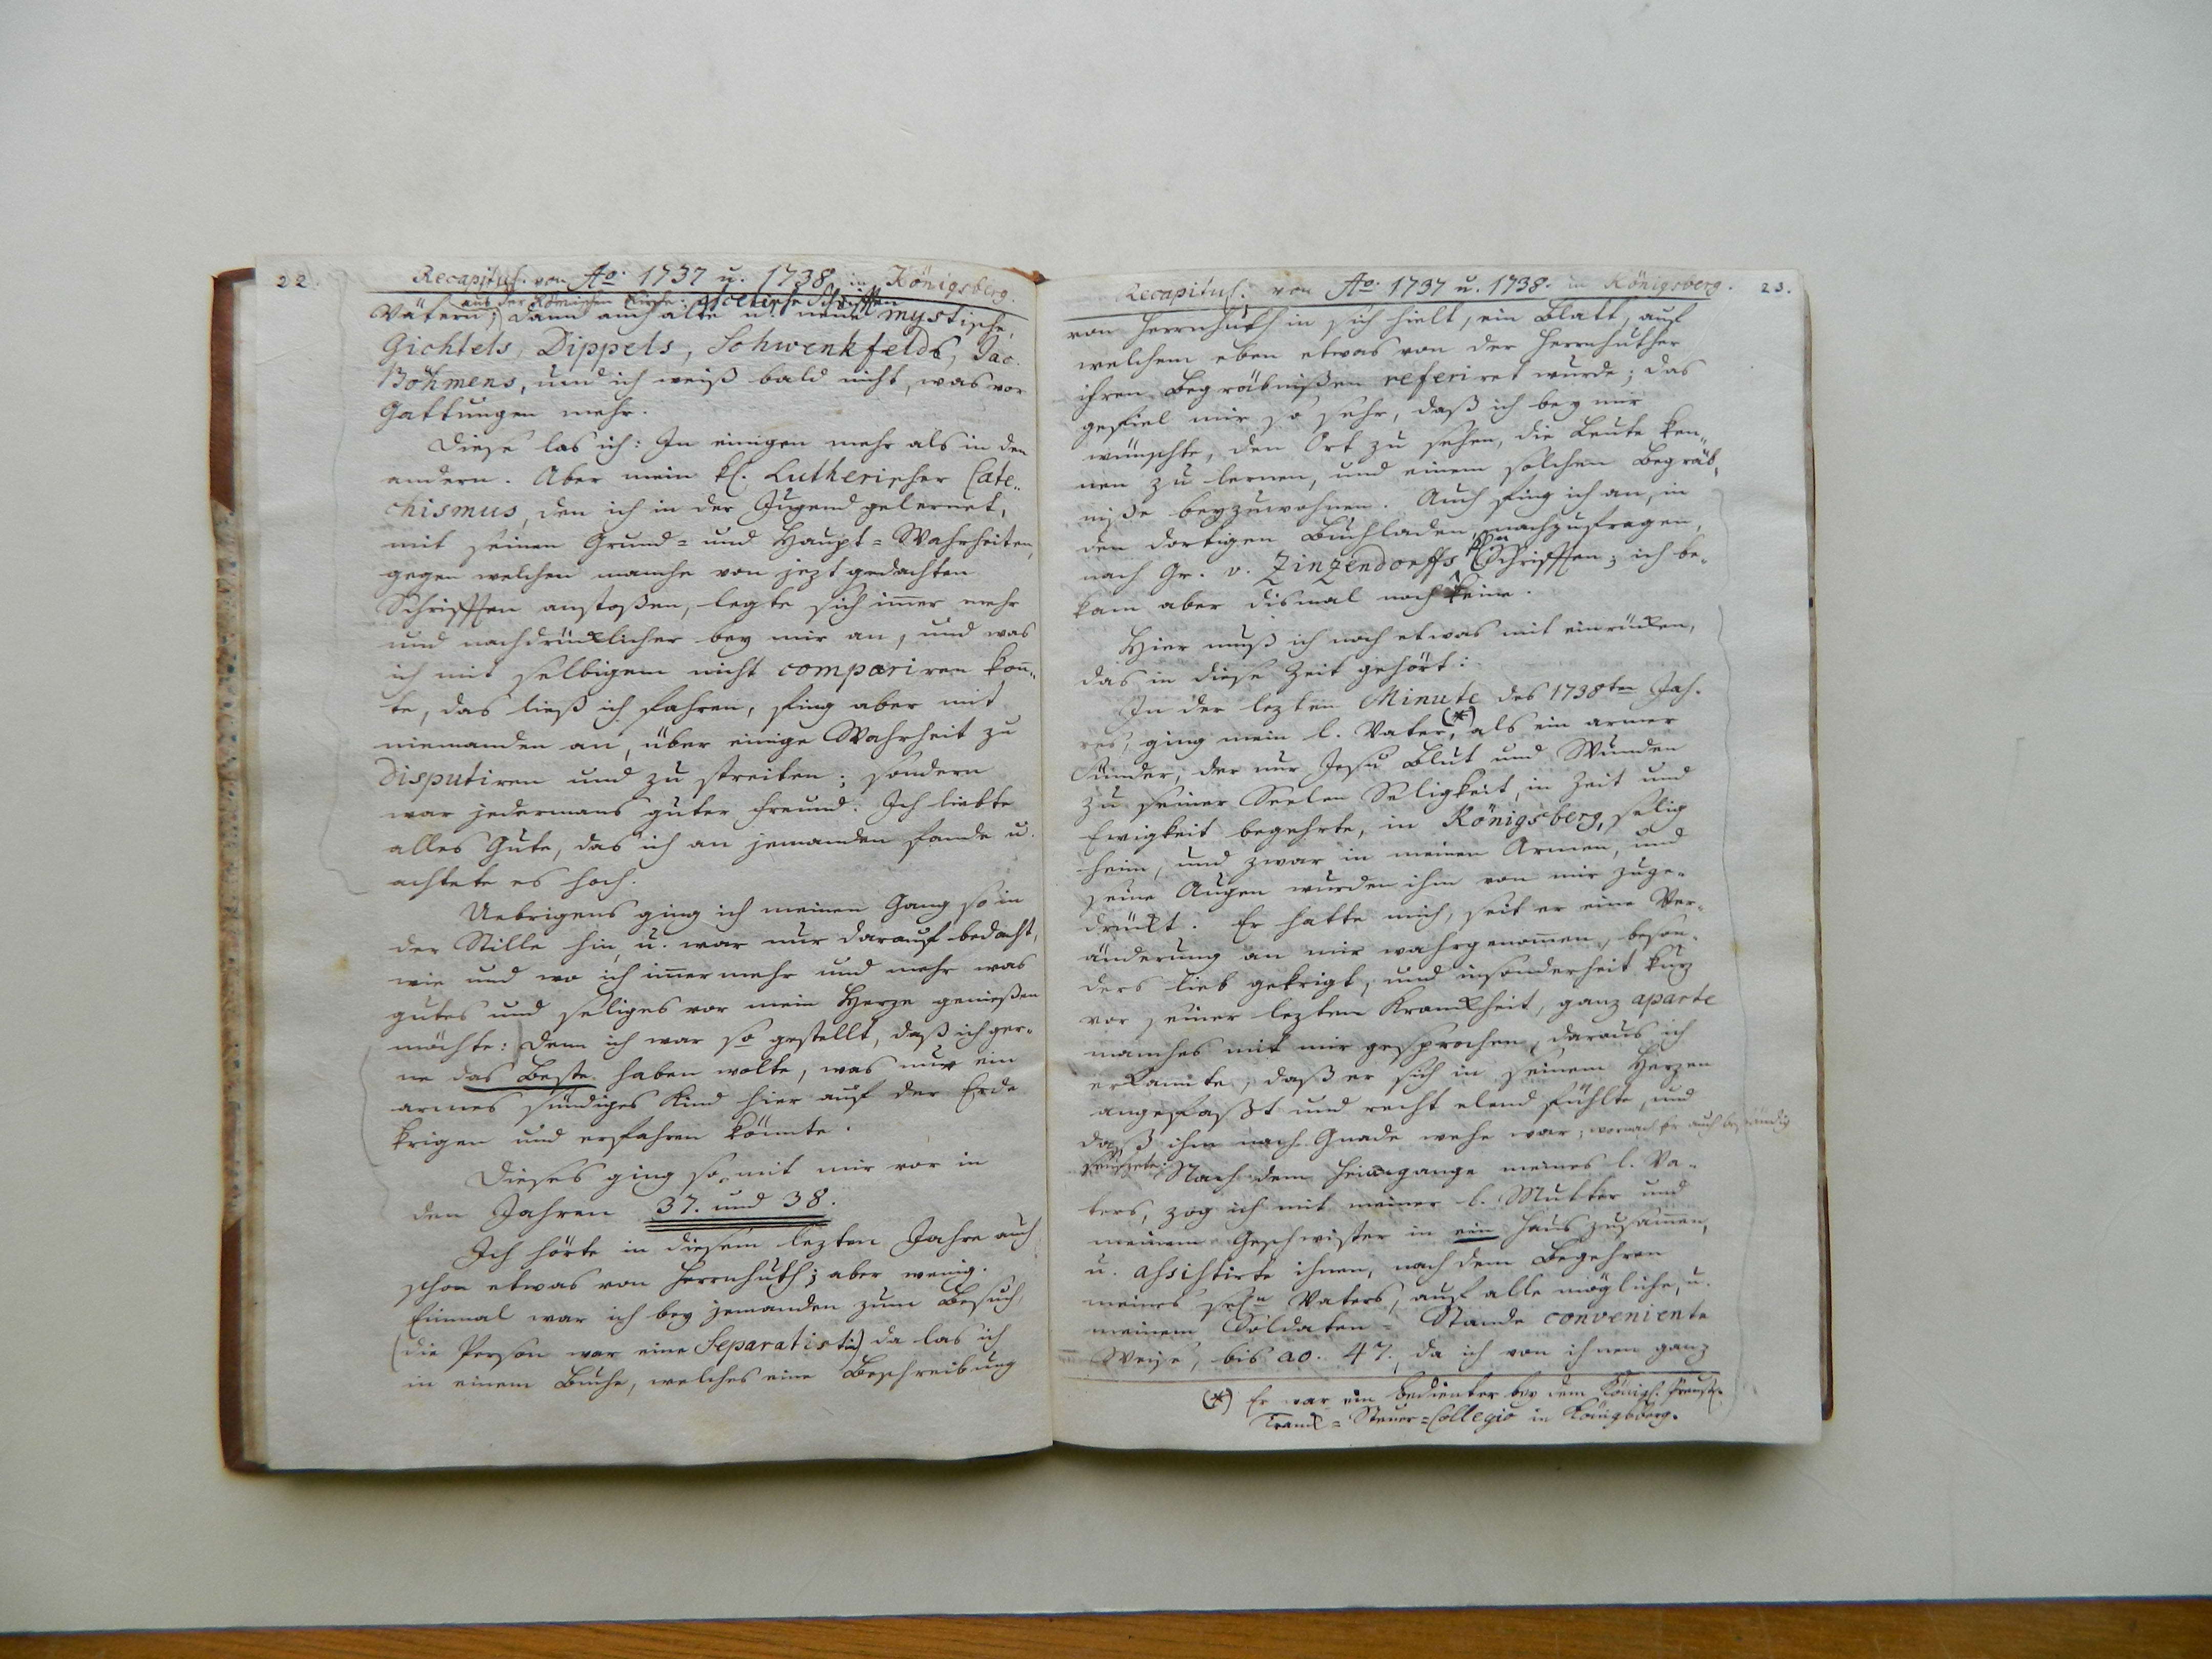 22.
Recapitul. von Ao. 1737 u. 1738. in Königsberg.
aus der Römischen Kirche: ascetische Schrifften
Vätern; dann auch alte u. neue mystische,
Gichtels, Dippels, Schwenkfelds, Jac.
Böhmens, und ich weiß bald nicht, was vor
Gattungen mehr.
Diese las ich: In einigen mehr als in den
andern. Aber mein kl. Lutherischer Cate„
chismus, den ich in der Jugend gelernet,
mit seinen Grund= und Haupt=Wahrheiten,
gegen welchen manche von jezt gedachten
Schrifften anstoßen, legte sich im̄er mehr
und nachdrüklicher bey mir an, und was
ich mit selbigem nicht compariren kon̄„
te, das ließ ich fahren, fing aber mit
niemanden an, über einige Wahrheit zu
disputiren und zu streiten; sondern
war jedermans guter Freund. Ich liebte
alles Gute, das ich an jemanden fande u.
achtete es hoch.
Uebrigens ging ich meinen Gang so in
der Stille hin, u. war nur darauf bedacht,
wie und wo ich im̄ermehr und mehr was
gutes und seliges vor mein Herze genießen
möchte: Denn ich war so gestellt, daß ich ger„
ne das Beste haben wolte, was nur ein
armes sündiges Kind hier auf der Erde
krigen und erfahren könnte.
Dieses ging so mit mir vor in
den Jahren 37. und 38.
Ich hörte in diesem lezten Jahre auch
schon etwas von Herrnhuth; aber wenig.
Einmal war ich bey jemanden zum Besuch,
(die Person war eine Separatistin) da las ich
in einem Buche, welches eine Beschreibung
Recapitul. von Ao. 1737 u. 1738. in Königsberg.
23.
von Herrnhuth in sich hielt, ein Blatt, auf
welchem eben etwas von der Herrnhuther
ihren Begräbnißen referiret wurde; das
gefiel mir so sehr, daß ich bey mir
wünschte, den Ort zu sehen, die Leute ken„
nen zu lernen, und einem solchen Begräb„
niße beyzuwohnen. Auch fing ich an, in
den dortigen Buchladen nachzufragen,
nach Gr. v. Zinzendorffs Schrifften; ich be„
kam aber dismal noch keine.
Hier muß ich noch etwas mit einrüken,
das in diese Zeit gehört:
In der lezten Minute des 1738ten Jah„
res, ging mein l. Vater, (*) als ein armer
Sünder, der nur Jesu Blut und Wunden
zu seiner Seelen Seligkeit, in Zeit und
Ewigkeit begehrte, in Königsberg, selig
heim, und zwar in meinen Armen, und
seine Augen wurden ihm von mir zuge„
drükt. Er hatte mich, seit er eine Ver„
änderung an mir wahrgenom̄en, beson„
ders lieb gekrigt, und insonderheit kurz
vor seiner lezten Krankheit, ganz aparte
manches mit mir gesprochen, daraus ich
erkannte, daß er sich in seinem Herzen
angefaßt und recht elend fühlte, und
daß ihm nach Gnade wehe war; wornach Er auch beständig
seufzete. Nach dem Heimgange meines l. Va„
ters, zog ich mit meiner l. Mutter und
meinem Geschwister in ein Haus zusam̄en,
u. assistirte ihnen, nach dem Begehren
meines seln Vaters, auf alle mögliche, u.
meinem Soldaten=Stande conveniente
Weise, bis ao. 47., da ich von ihnen ganz
(*) Er war ein Bedienter bey dem Königl. Preuß.
Trank=Steuer=Collegio in Königsberg.